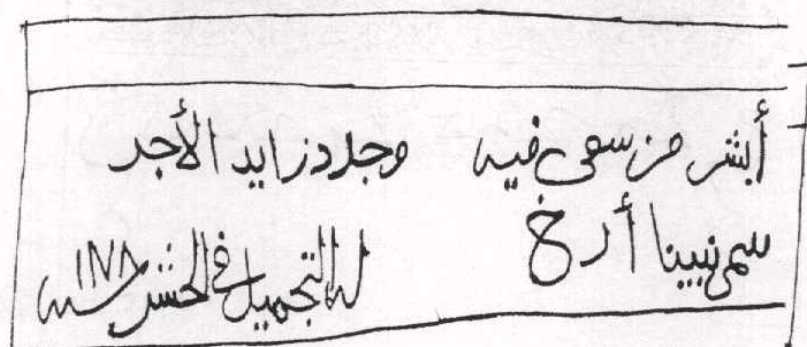 أبشر من سعى فيه وجدد زايد الأجر
سمى نبينا أرخ له التجميل في الحشر سنة ١١٧٨